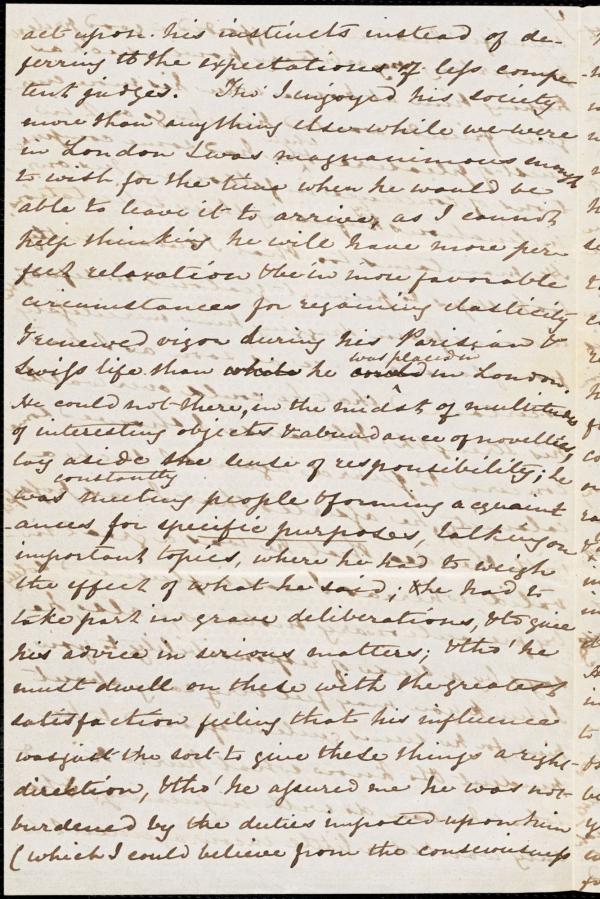 act upon his instincts instead of de-
ferring to the expectations of less compe-
tent judges. Tho' I enjoyed his society
more than anything else while we were
in London I was magnanimous enough
to wish for the time when he would be
able to leave it to arrive, as I cannot
help thinking he will have more per-
fect relaxation & be in more favorable
circumstances for regaining elasticity
& renewed vigor during his Parisian &
Swiss life than while he was placed in in London.
He could not there, in the midst of multitudes
of interesting objects & abundance of novelties,
lay aside the sense of responsibility; he
was constantly meeting people & forming acquaint
-ances for specific purposes, talking on
important topics, where he had to weigh
the effect of what he said; & he had to
take part in grave deliberations, & to give
his advice in serious matters; & tho' he
must dwell on these with the greatest
satisfaction feeling that his influence
was just the sort to give these things a right
direction, & tho' he assured me he was not
burdened by the duties imposed upon him
(which I could believe from the consciousness